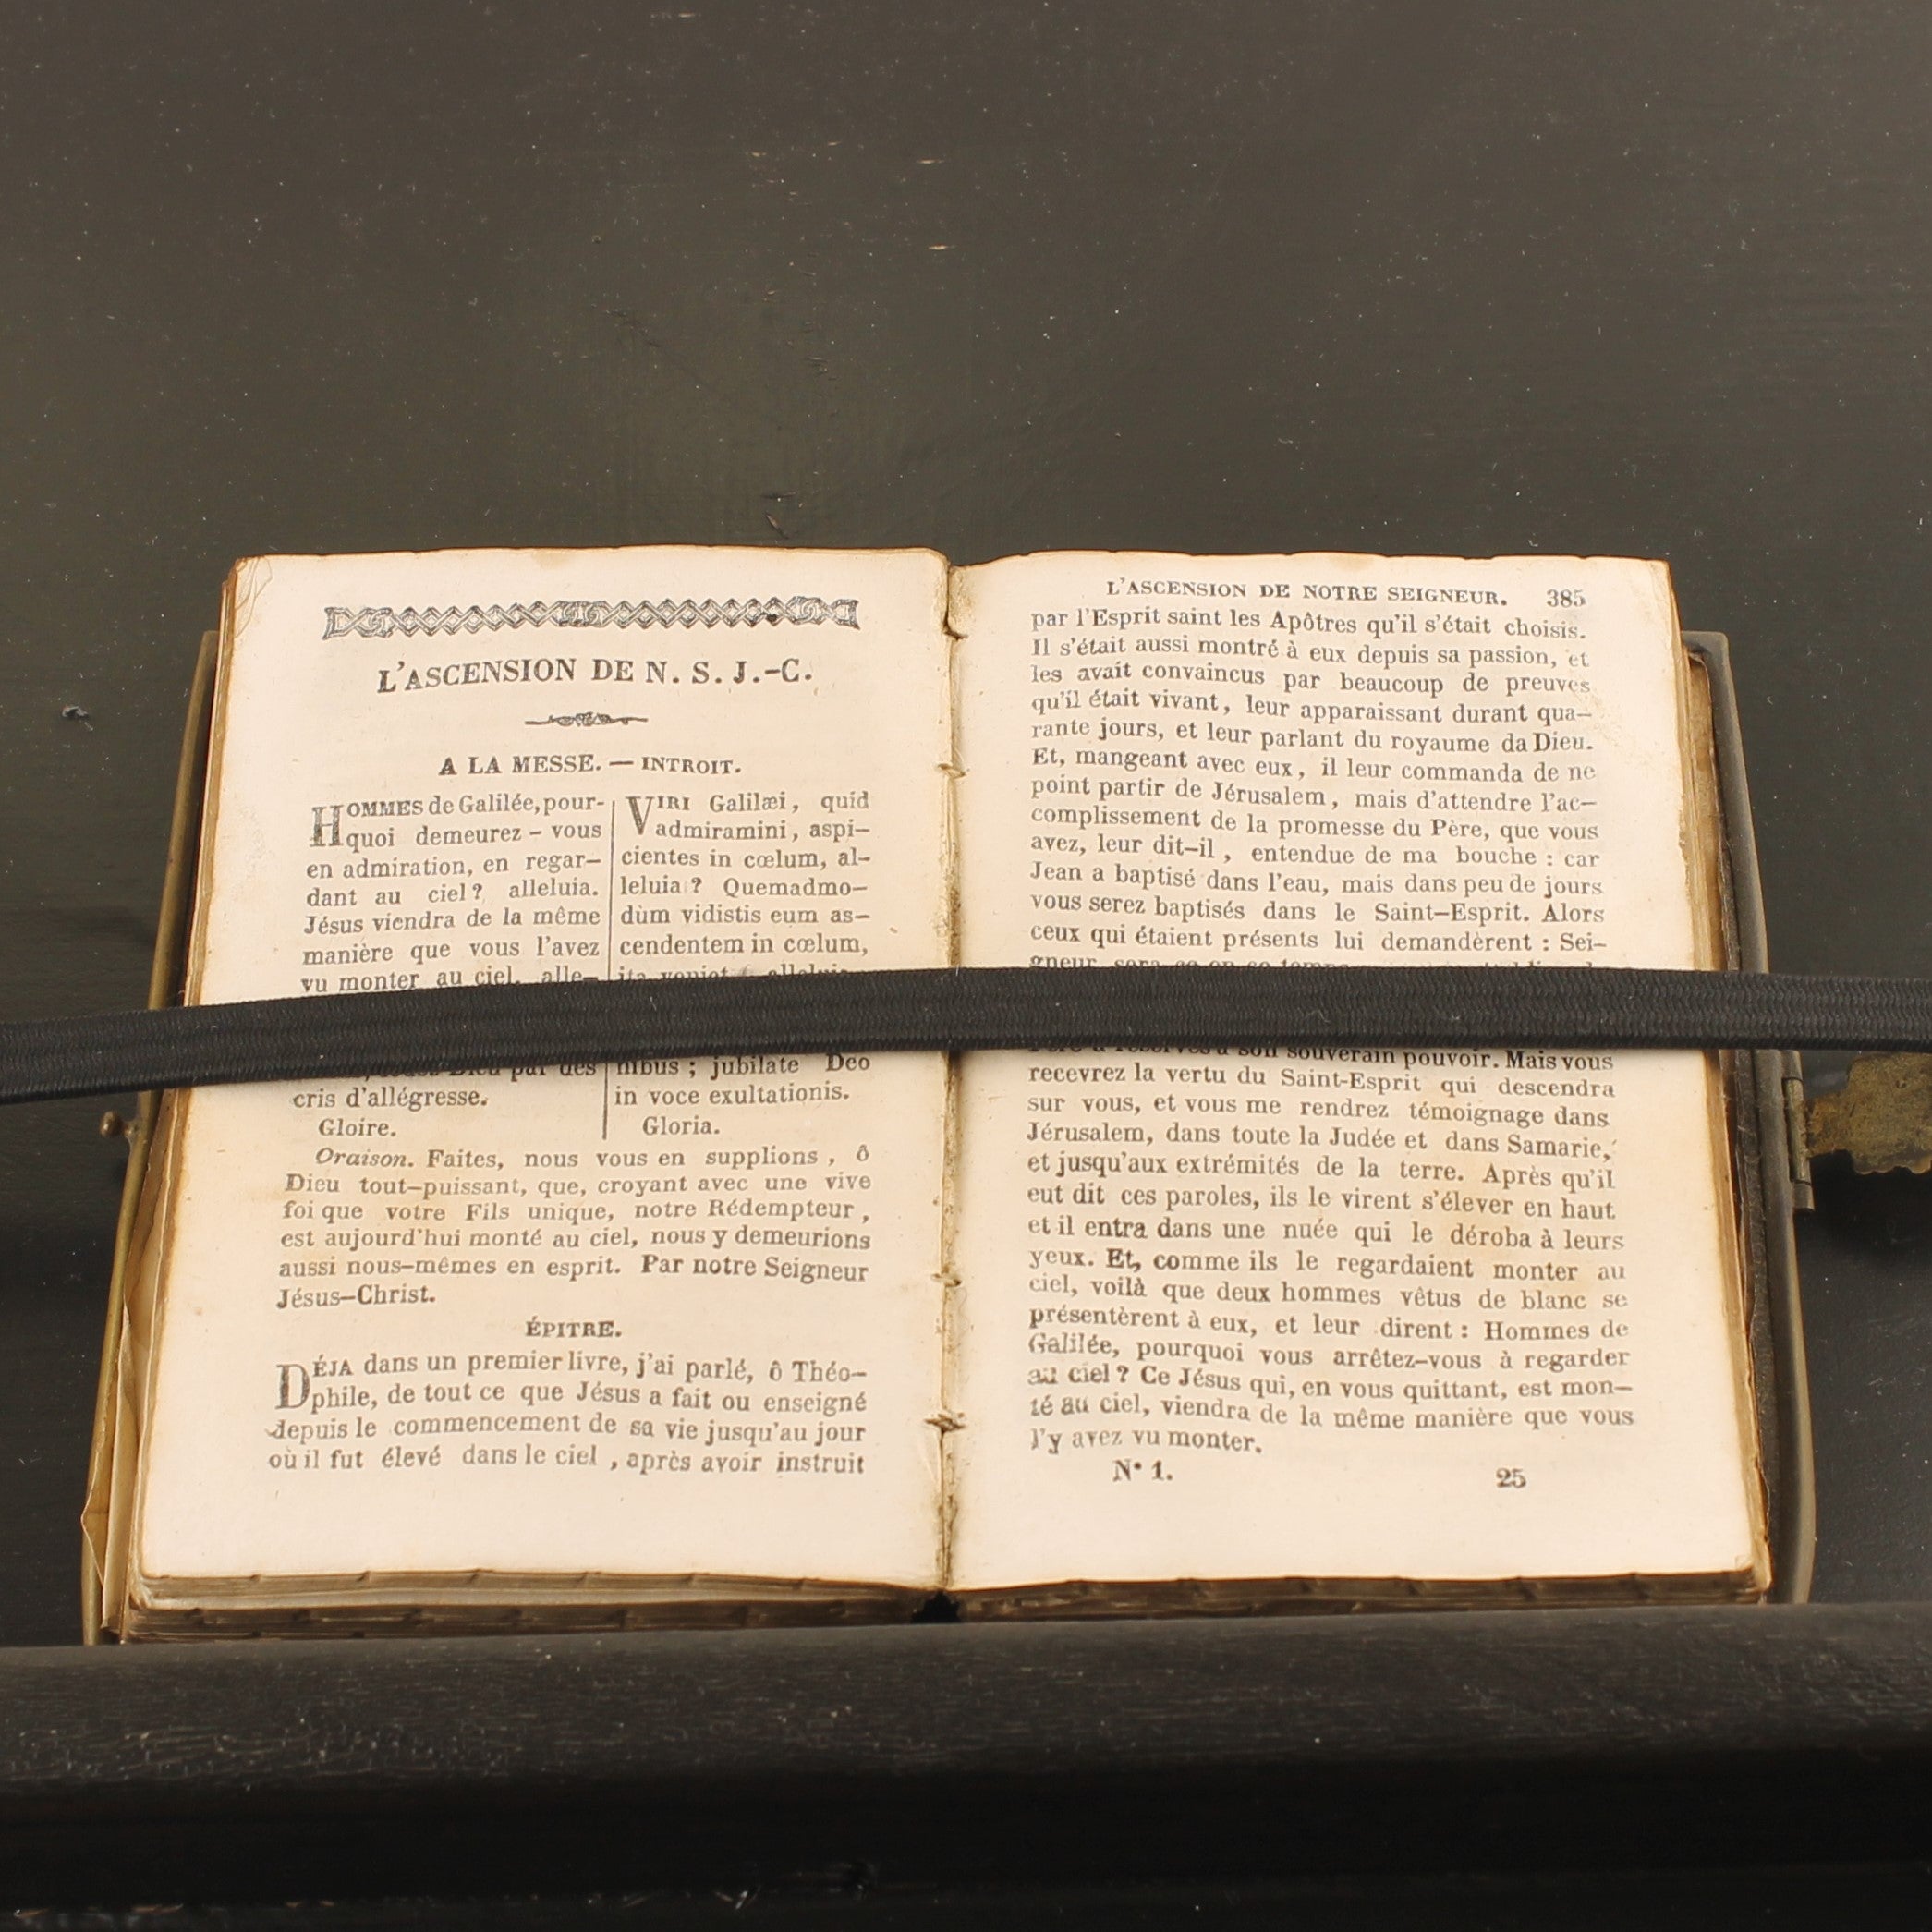 L'ASCENSION DE N. S. J.-C.
A LA MESSE. — INTROIT.
HOMMES de Galilée, pour-
quoi demeurez-vous
en admiration, en regar-
dant au ciel? alleluia.
Jésus viendra de la même
manière que vous l'avez
vu monter au ciel, alle-
par des
cris d'allégresse.
Gloire.
VIRI Galilæi, quid
admiramini, aspi-
cientes in cœlum, al-
leluia? Quemadmo-
dùm vidistis eum as-
cendentem in cœlum,
ita veniet alleluia
nibus; jubilate Deo
in voce exultationis.
Gloria.
Oraison. Faites, nous vous en supplions, ô
Dieu tout-puissant, que, croyant avec une vive
foi que votre Fils unique, notre Rédempteur,
est aujourd'hui monté au ciel, nous y demeurions
aussi nous-mêmes en esprit. Par notre Seigneur
Jésus-Christ.
ÉPITRE.
DÉJA dans un premier livre, j'ai parlé, ô Théo-
phile, de tout ce que Jésus a fait ou enseigné
depuis le commencement de sa vie jusqu'au jour
où il fut élevé dans le ciel, après avoir instruit
L'ASCENSION DE NOTRE SEIGNEUR. 385
par l'Esprit saint les Apôtres qu'il s'était choisis.
Il s'était aussi montré à eux depuis sa passion, et
les avait convaincus par beaucoup de preuves
qu'il était vivant, leur apparaissant durant qua-
rante jours, et leur parlant du royaume da Dieu.
Et, mangeant avec eux, il leur commanda de ne
point partir de Jérusalem, mais d'attendre l'ac-
complissement de la promesse du Père, que vous
avez, leur dit-il, entendue de ma bouche : car
Jean a baptisé dans l'eau, mais dans peu de jours
vous serez baptisés dans le Saint-Esprit. Alors
ceux qui étaient présents lui demandèrent : Sei-
gneur, sera ce en ce temps
son souverain pouvoir. Mais vous
recevrez la vertu du Saint-Esprit qui descendra
sur vous, et vous me rendrez témoignage dans
Jérusalem, dans toute la Judée et dans Samarie,
et jusqu'aux extrémités de la terre. Après qu'il
eut dit ces paroles, ils le virent s'élever en haut
et il entra dans une nuée qui le déroba à leurs
yeux. Et, comme ils le regardaient monter au
ciel, voilà que deux hommes vêtus de blanc se
présentèrent à eux, et leur dirent : Hommes de
Galilée, pourquoi vous arrêtez-vous à regarder
au ciel? Ce Jésus qui, en vous quittant, est mon-
té au ciel, viendra de la même manière que vous
l'y avez vu monter.
N° 1. 25